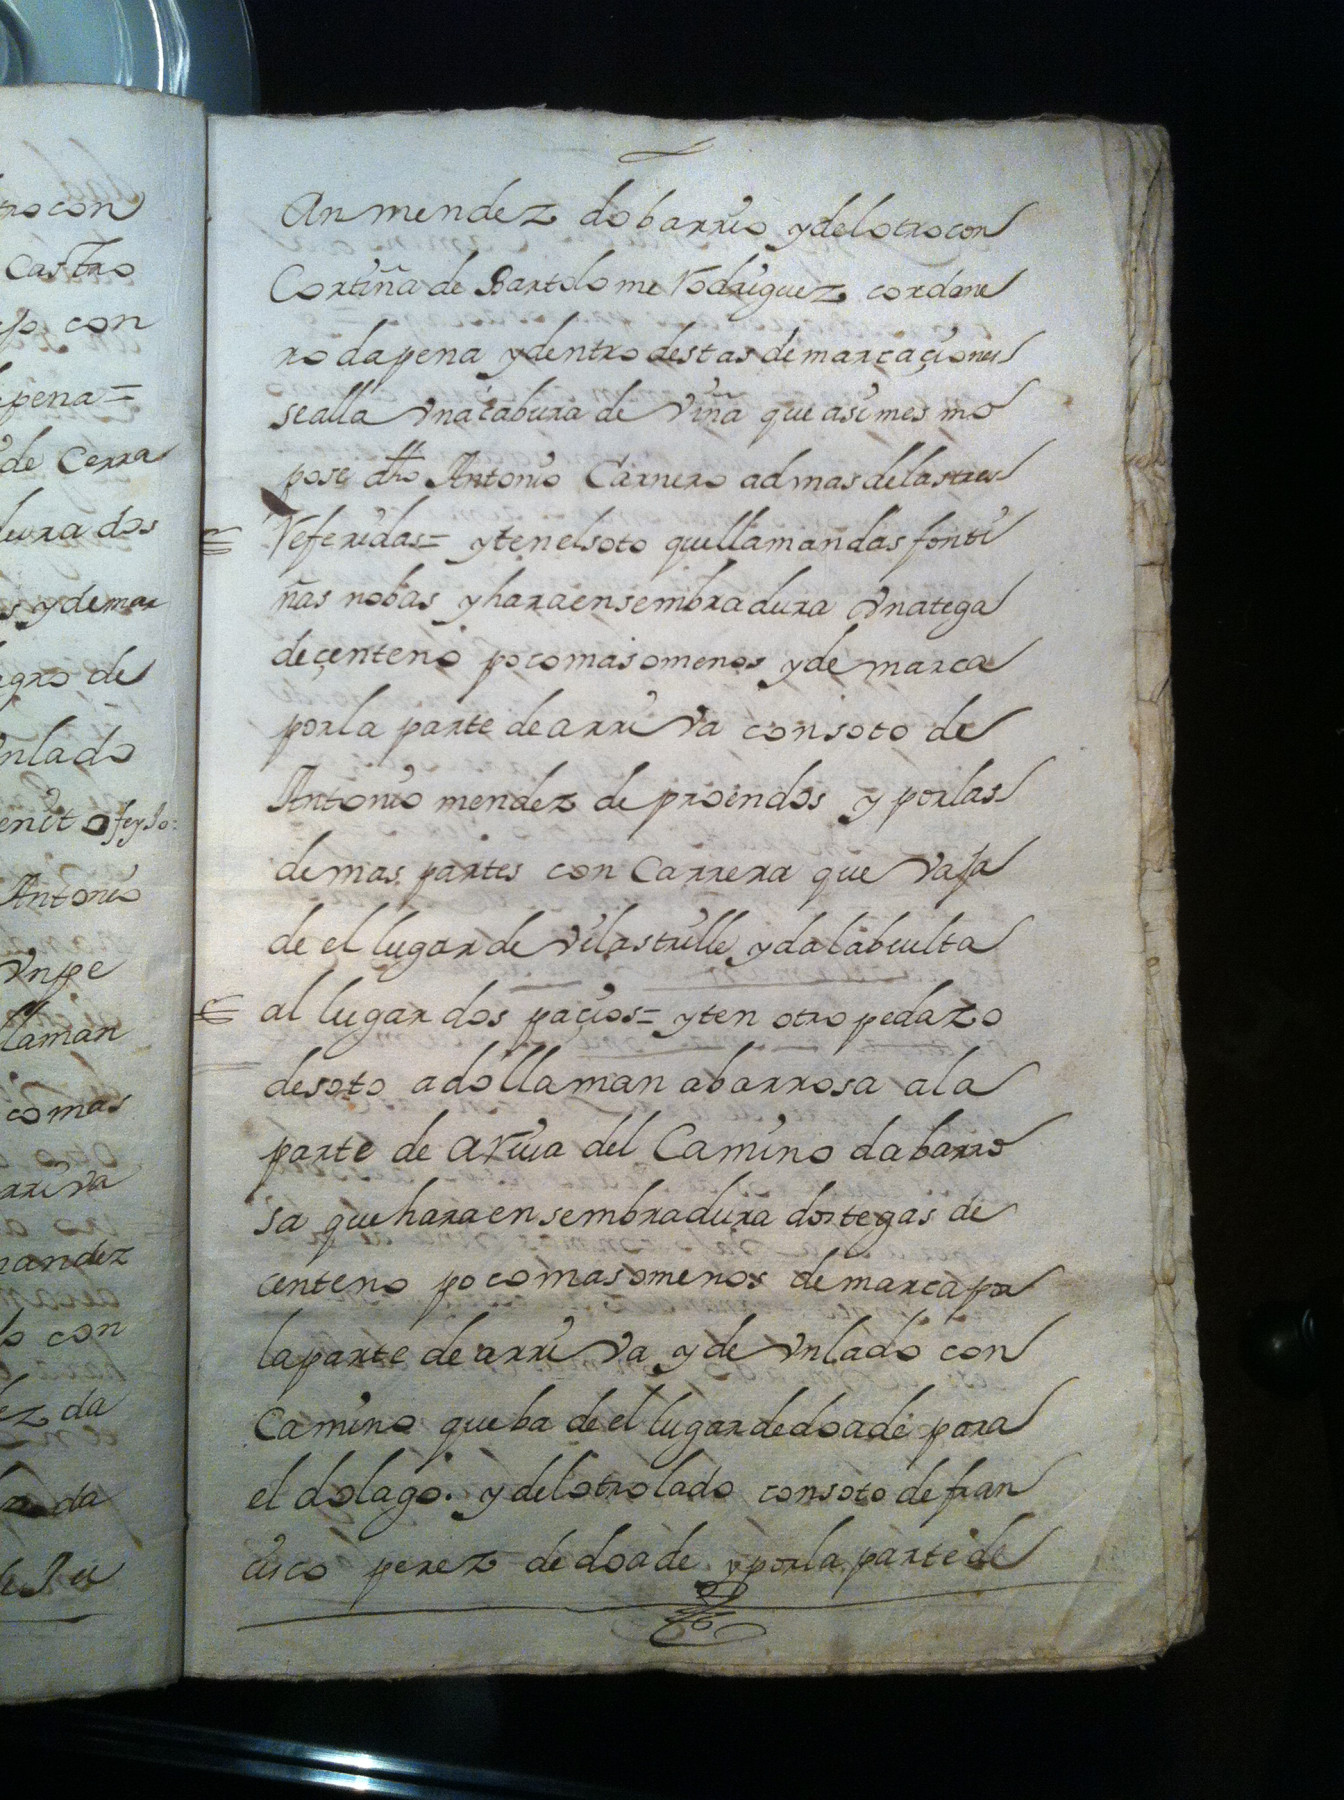 tro con
Castro
jo con
pena =
de Cerra
dura dos
s y demar
egro de
Vnlado
enito feyjo:
Antonio
Vn pe
llaman
comas
arriva
nandez
o con
ez da
da
de Ju
An mendez do barrio y del otro con
Cortiña de Bartolome Rodriguez cordone
ro da pena y dentro destas demarcaçiones
se alla Vna cabura de Viña que asimesmo
pose dho Antonio Carnero admas de las tres
Referidas = yten el soto que llaman das fonti
ñas nobas y hara en sembradura Vna tega
de çenteno poco mas o menos y de marca
por la parte de arriva con soto de
Antonio mendez de proendos y por las
demas partes con Carrera que Vaja
de el lugar de Vilastrille y da la buelta
al lugar dos paçios = yten otro pedazo
de soto ado llaman abarrosa a la
parte de aRiva del Camino da barro
sa que hara en sembradura dos tegas de
centeno poco mas o menos demarca por
la parte de arriva y de Vn lado con
Camino que ba de el lugar de doade para
el do lago. y del otro lado con soto de fran
cisco perez de doade y por la parte de